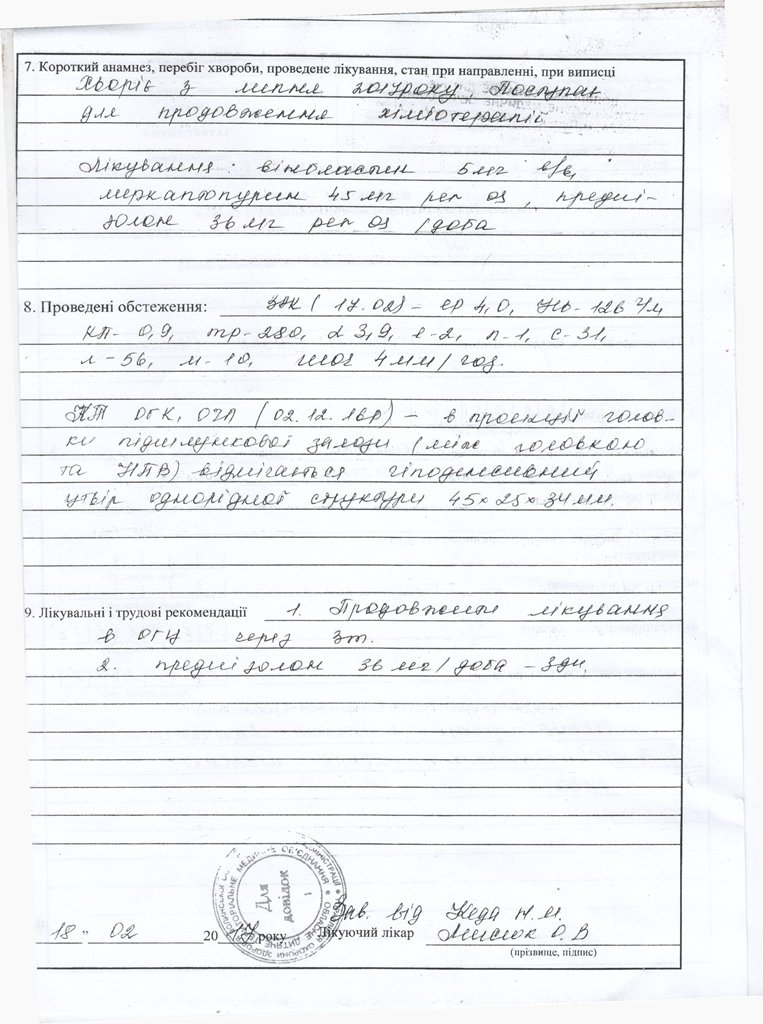 7. Короткий анамнез, перебіг хвороби, проведене лікування, стан при направленні, при виписці
Хворіє з липня року. Поступає
для продовження хіміотерапії
Лікування: вінбластин 5 мг в/в,
меркаптопурин 45 мг per os, предні-
золон 36 мг per os /доба
8. Проведені обстеження: ЗАК ( 17.02) - ер 4,0, Нb- 126 г/л
КП- 0,9, тр-280, л 3,9, е-2, п-1, с-31,
л-56, м-10, шое 4мм/год.
КТ ОГК, ОЧП (02.12.16р) - в проекції голов-
ки підшлункової залози (між головкою
та НПВ) відмічається гіподенсивний
утвір однорідної структури 45×25×34мм.
9. Лікувальні і трудові рекомендації 1. Продовжити лікування
в ОГЦ через 3т.
2. преднізолон 36 мг/доба - 3дн.
Для
довідок
1
Зав. від
18 " 02 2017 року Лікуючий лікар О. В
(прізвище, підпис)